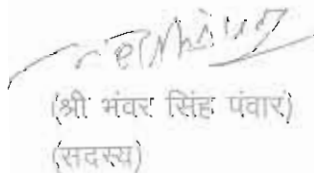 (श्री भंवर सिंह पंवार)
(सदस्य)